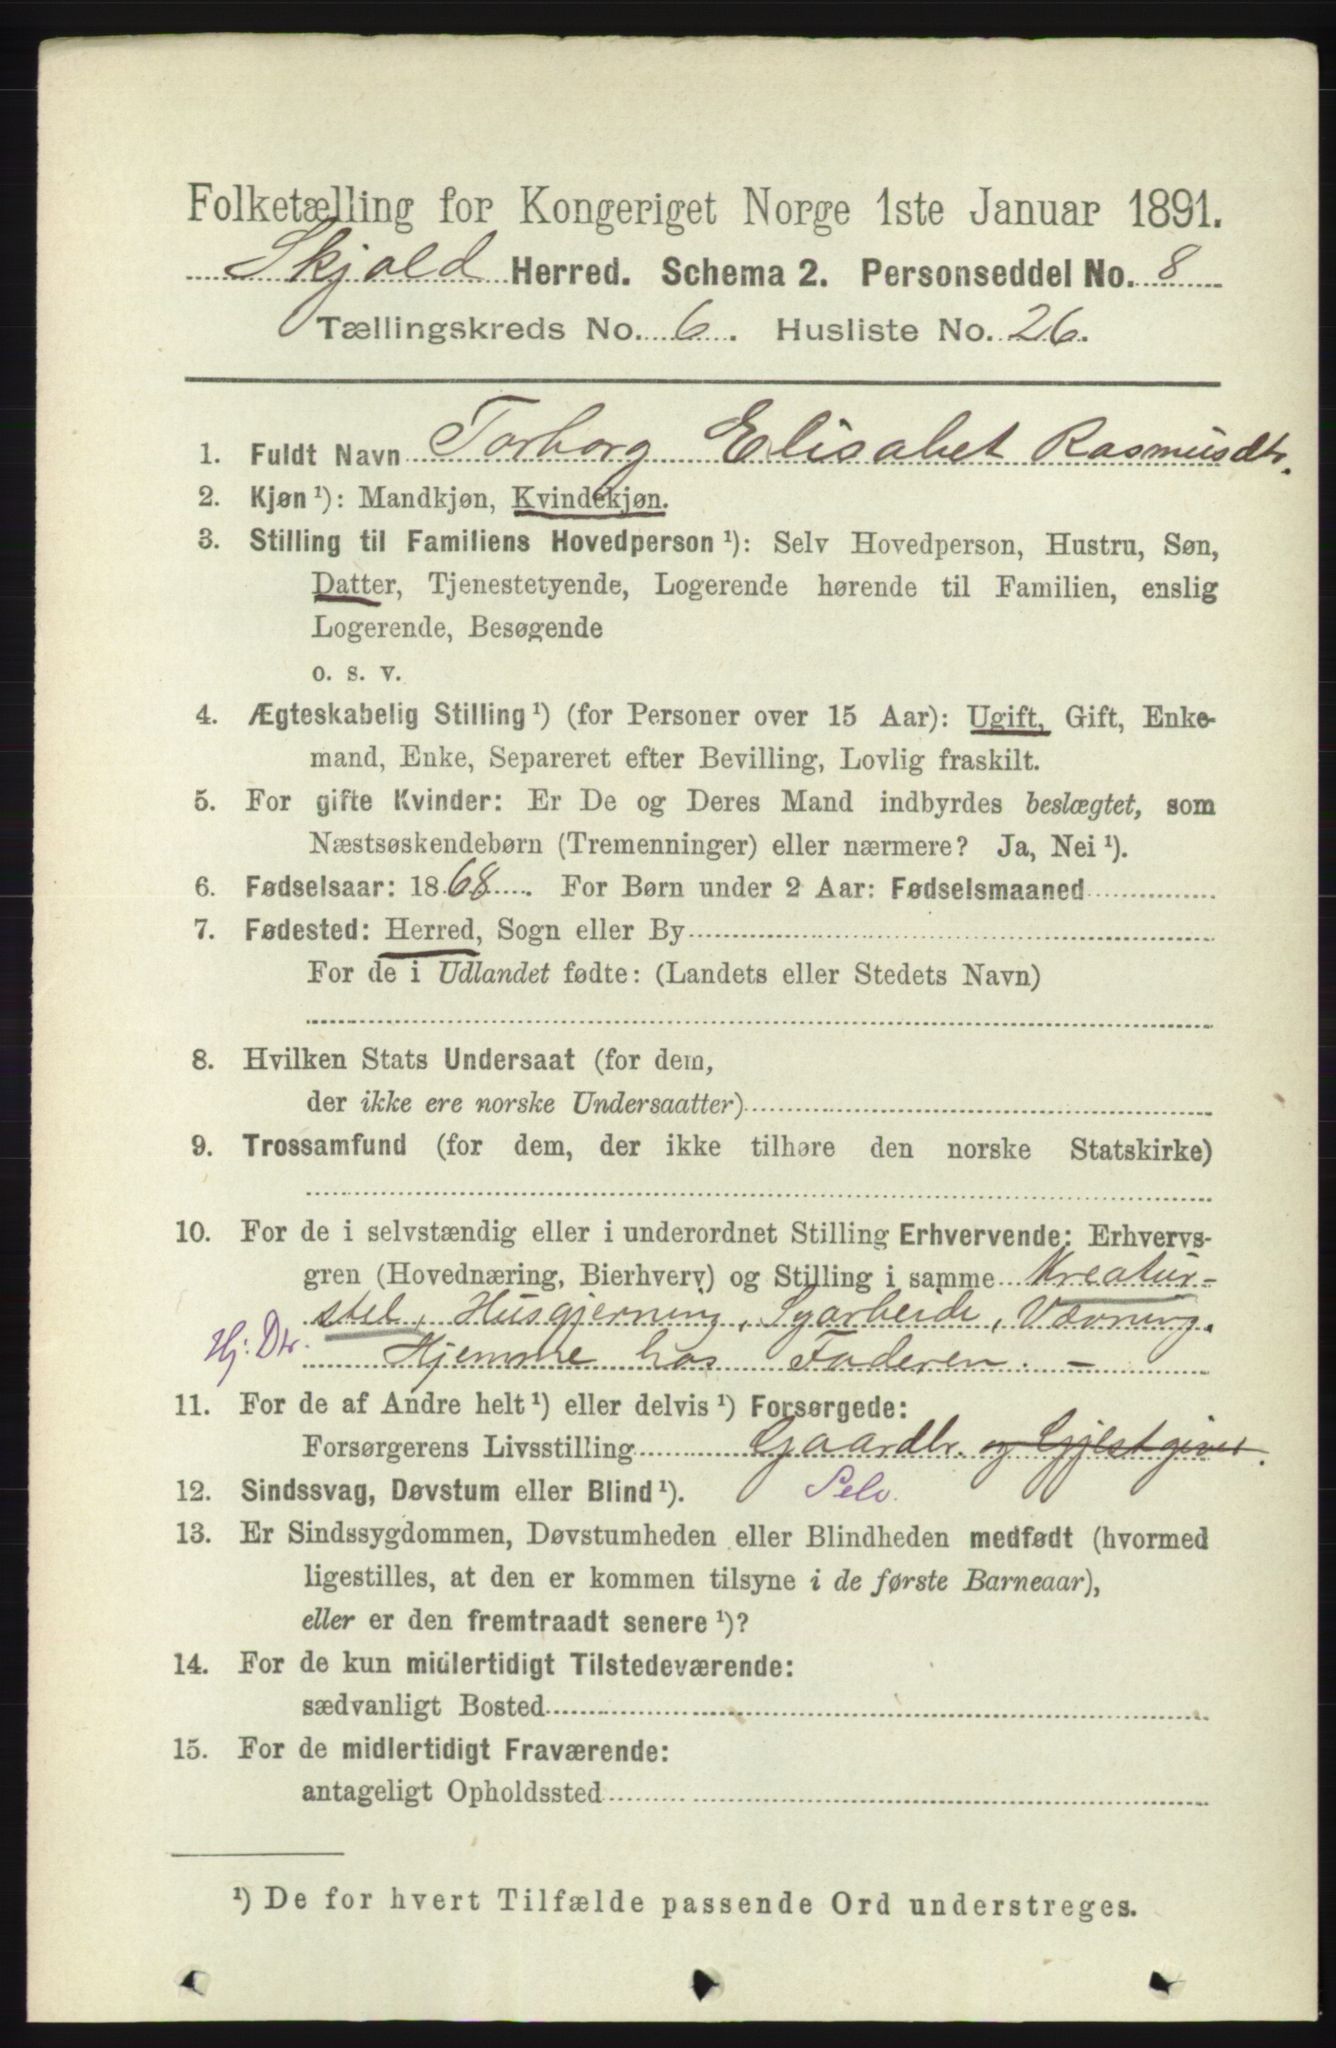 Folketælling for Kongeriget Norge 1ste Januar 1891.
Skjold Herred. Schema 2. Personseddel No. 8
Tællingskreds No. 6. Husliste No. 26.
1. Fuldt Navn Torborg Elisabet Rasmusdtr.
2. Kjøn¹): Mandkjøn, Kvindekjøn.
3. Stilling til Familiens Hovedperson¹): Selv Hovedperson, Hustru, Søn,
Datter, Tjenestetyende, Logerende hørende til Familien, enslig
Logerende, Besøgende
o. s. v.
4. Ægteskabelig Stilling¹) (for Personer over 15 Aar): Ugift, Gift, Enke-
mand, Enke, Separeret efter Bevilling, Lovlig fraskilt.
5. For gifte Kvinder: Er De og Deres Mand indbyrdes beslægtet, som
Næstsøskendebørn (Tremenninger) eller nærmere? Ja, Nei¹).
6. Fødselsaar: 1868. For Børn under 2 Aar: Fødselsmaaned
7. Fødested: Herred, Sogn eller By
For de i Udlandet fødte: (Landets eller Stedets Navn)
8. Hvilken Stats Undersaat (for dem,
der ikke ere norske Undersaatter)
9. Trossamfund (for dem, der ikke tilhøre den norske Statskirke)
10. For de i selvstændig eller i underordnet Stilling Erhvervende: Erhvervs-
gren (Hovednæring, Bierhverv) og Stilling i samme Kreatur-
stel, Husgjerning, Syarbeide, Vævning.
Hj. Dtr. Hjemme hos Faderen. –
11. For de af Andre helt¹) eller delvis¹) Forsørgede:
Forsørgerens Livsstilling Gaardbr. og Gjestgiver.
12. Sindssvag, Døvstum eller Blind¹). Selv.
13. Er Sindssygdommen, Døvstumheden eller Blindheden medfødt (hvormed
ligestilles, at den er kommen tilsyne i de første Barneaar),
eller er den fremtraadt senere¹)?
14. For de kun midlertidigt Tilstedeværende:
sædvanligt Bosted
15. For de midlertidigt Fraværende:
antageligt Opholdssted
¹) De for hvert Tilfælde passende Ord understreges.